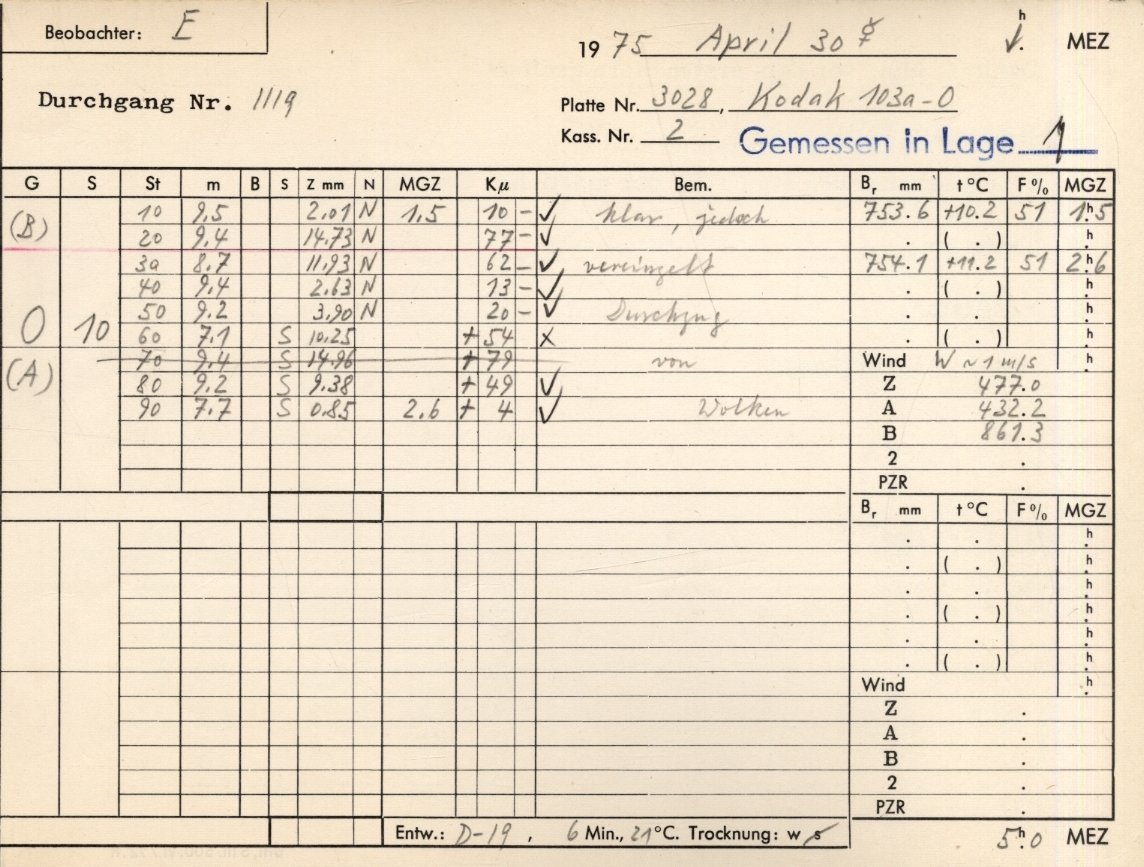 Beobachter: E
1975 April 30 ☿ h MEZ
Durchgang Nr. 1119
Platte Nr. 3028, Kodak 103a-O
Kass. Nr. 2 Gemessen in Lage 1
G S St m B S Z mm N MGZ Kµ Bem. Br mm t °C F % MGZ
(B) 10 9.5 2.01 N 1.5 10 - ✓ klar, jedoch 753.6 +10.2 51 1h.5
20 9.4 14.73 N 77 - ✓ . ( . ) h.
3a 8.7 11.93 N 62 - ✓ vereinzelt 754.1 +11.2 51 2h.6
40 9.4 2.63 N 13 - ✓ . ( . ) h.
O 10 50 9.2 3.90 N 20 - ✓ Durchzug . . h.
60 7.1 S 10.25 + 54 x . ( . ) h.
(A) 70 9.4 S 14.96 + 79 von Wind W ~ 1 m/s h.
80 9.2 S 9.38 + 49 ✓ Z 477.0
90 7.7 S 0.85 2.6 + 4 ✓ Wolken A 432.2
B 861.3
2 .
PZR .
Br mm t °C F % MGZ
. . h.
. ( . ) h.
. . h.
. ( . ) h.
. . h.
. ( . ) h.
Wind h.
Z .
A .
B .
2 .
PZR .
Entw.: D-19, 6 Min., 21°C. Trocknung: w s 5h.0 MEZ